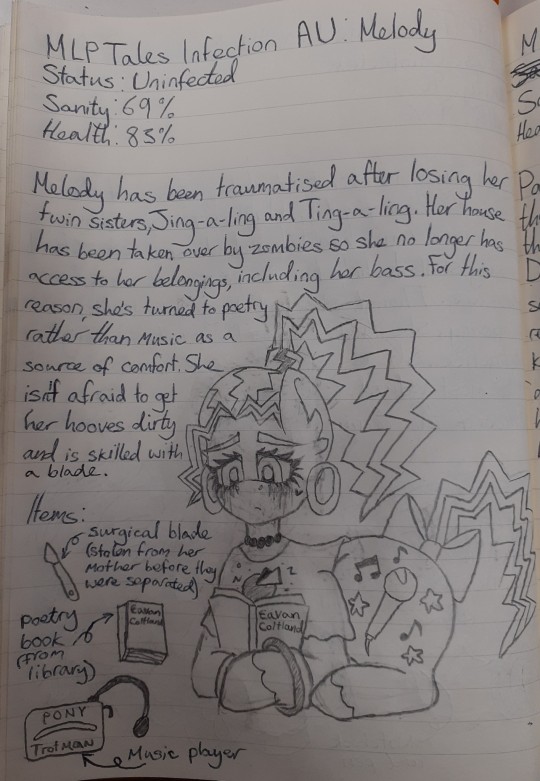 MLP Tales Infection AU: Melody
Status: Uninfected
Sanity: 69%
Health: 83%
Melody has been traumatised after losing her
twin sisters, Jing-a-ling and Ting-a-ling. Her house
has been taken over by zombies so she no longer has
access to her belongings, including her bass. For this
reason, she's turned to poetry
rather than music as a
source of comfort. She
isn't afraid to get
her hooves dirty
and is skilled with
a blade.
Items:
surgical blade
(stolen from her
Mother before they
were separated)
Poetry
book
(from
library)
Eavan
Coltland
Eavan
Coltland
PONY
TrotMAN
Music player